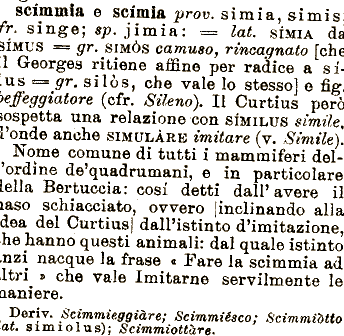 scímmia e scímia prov. simia, simis;
fr. singe; sp. jimia: = lat. SÍMIA da
SÍMUS = gr. SIMÒS camuso, rincagnato [che
il Georges ritiene affine per radice a sí-
lus = gr. silòs, che vale lo stesso] e fig.
beffeggiatore (cfr. Sileno). Il Curtius però
sospetta una relazione con SÍMILUS simile,
l'onde anche SIMULÀRE imitare (v. Simile).
Nome comune di tutti i mammiferi del-
l'ordine de'quadrumani, e in particolare
della Bertuccia: cosí detti dall'avere il
naso schiacciato, ovvero |inclinando alla
idea del Curtius| dall'istinto d'imitazione,
che hanno questi animali: dal quale istinto
anzi nacque la frase « Fare la scimmia ad
altri » che vale Imitarne servilmente le
maniere.
Deriv. Scimmieggiàre; Scimmiésco; Scimmiòtto
(lat. simíolus); Scimmiottàre.